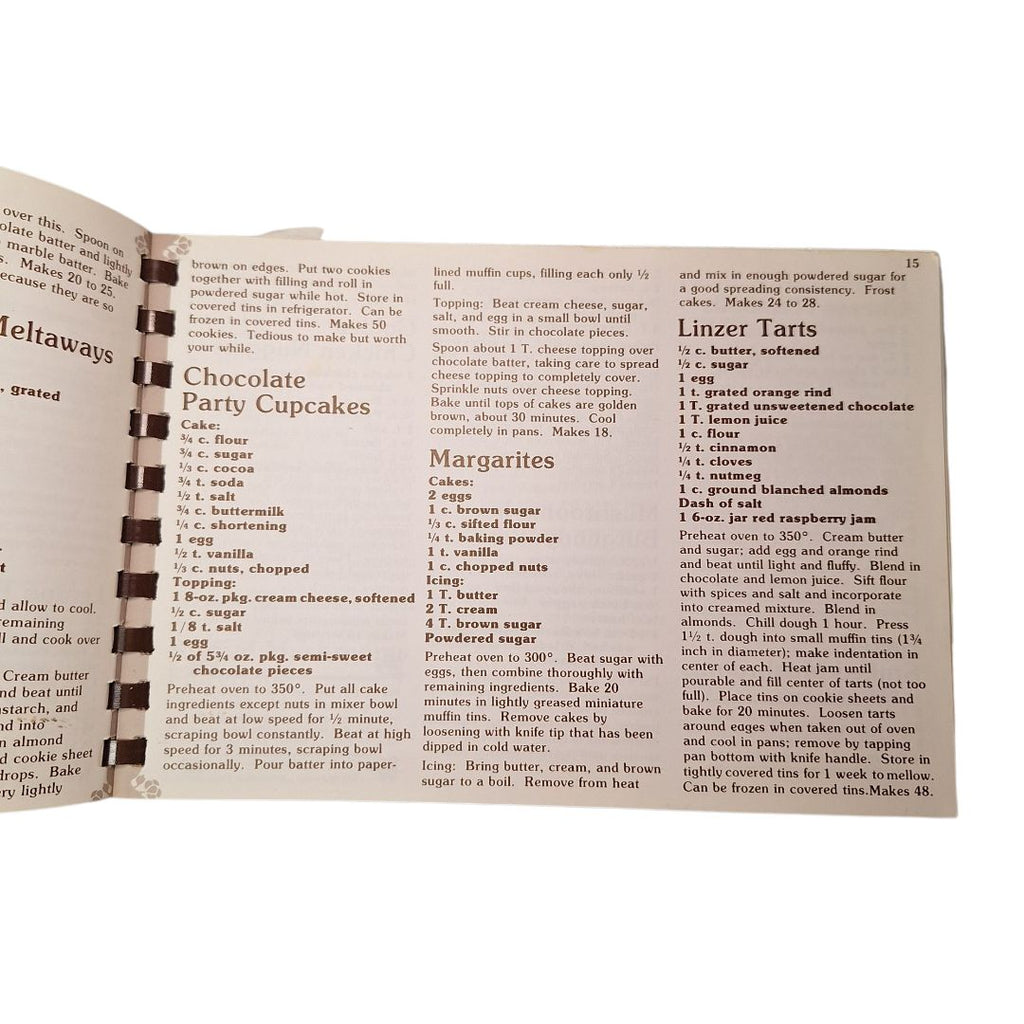 over this. Spoon on
olate batter and lightly
marble batter. Bake
s. Makes 20 to 25.
ecause they are so
Meltaways
, grated
t
d allow to cool.
remaining
ll and cook over
Cream butter
nd beat until
nstarch, and
nd into
n almond
d cookie sheet
drops. Bake
ry lightly
brown on edges. Put two cookies
together with filling and roll in
powdered sugar while hot. Store in
covered tins in refrigerator. Can be
frozen in covered tins. Makes 50
cookies. Tedious to make but worth
your while.
Chocolate
Party Cupcakes
Cake:
¾ c. flour
¾ c. sugar
⅓ c. cocoa
¾ t. soda
½ t. salt
¾ c. buttermilk
¼ c. shortening
1 egg
½ t. vanilla
⅓ c. nuts, chopped
Topping:
1 8-oz. pkg. cream cheese, softened
½ c. sugar
1/8 t. salt
1 egg
½ of 5¾ oz. pkg. semi-sweet
chocolate pieces
Preheat oven to 350°. Put all cake
ingredients except nuts in mixer bowl
and beat at low speed for ½ minute,
scraping bowl constantly. Beat at high
speed for 3 minutes, scraping bowl
occasionally. Pour batter into paper-
lined muffin cups, filling each only ½
full.
Topping: Beat cream cheese, sugar,
salt, and egg in a small bowl until
smooth. Stir in chocolate pieces.
Spoon about 1 T. cheese topping over
chocolate batter, taking care to spread
cheese topping to completely cover.
Sprinkle nuts over cheese topping.
Bake until tops of cakes are golden
brown, about 30 minutes. Cool
completely in pans. Makes 18.
Margarites
Cakes:
2 eggs
1 c. brown sugar
⅓ c. sifted flour
¼ t. baking powder
1 t. vanilla
1 c. chopped nuts
Icing:
1 T. butter
2 T. cream
4 T. brown sugar
Powdered sugar
Preheat oven to 300°. Beat sugar with
eggs, then combine thoroughly with
remaining ingredients. Bake 20
minutes in lightly greased miniature
muffin tins. Remove cakes by
loosening with knife tip that has been
dipped in cold water.
Icing: Bring butter, cream, and brown
sugar to a boil. Remove from heat
15
and mix in enough powdered sugar for
a good spreading consistency. Frost
cakes. Makes 24 to 28.
Linzer Tarts
½ c. butter, softened
½ c. sugar
1 egg
1 t. grated orange rind
1 T. grated unsweetened chocolate
1 T. lemon juice
1 c. flour
½ t. cinnamon
¼ t. cloves
¼ t. nutmeg
1 c. ground blanched almonds
Dash of salt
1 6-oz. jar red raspberry jam
Preheat oven to 350°. Cream butter
and sugar; add egg and orange rind
and beat until light and fluffy. Blend in
chocolate and lemon juice. Sift flour
with spices and salt and incorporate
into creamed mixture. Blend in
almonds. Chill dough 1 hour. Press
1½ t. dough into small muffin tins (1¾
inch in diameter); make indentation in
center of each. Heat jam until
pourable and fill center of tarts (not too
full). Place tins on cookie sheets and
bake for 20 minutes. Loosen tarts
around edges when taken out of oven
and cool in pans; remove by tapping
pan bottom with knife handle. Store in
tightly covered tins for 1 week to mellow.
Can be frozen in covered tins.Makes 48.